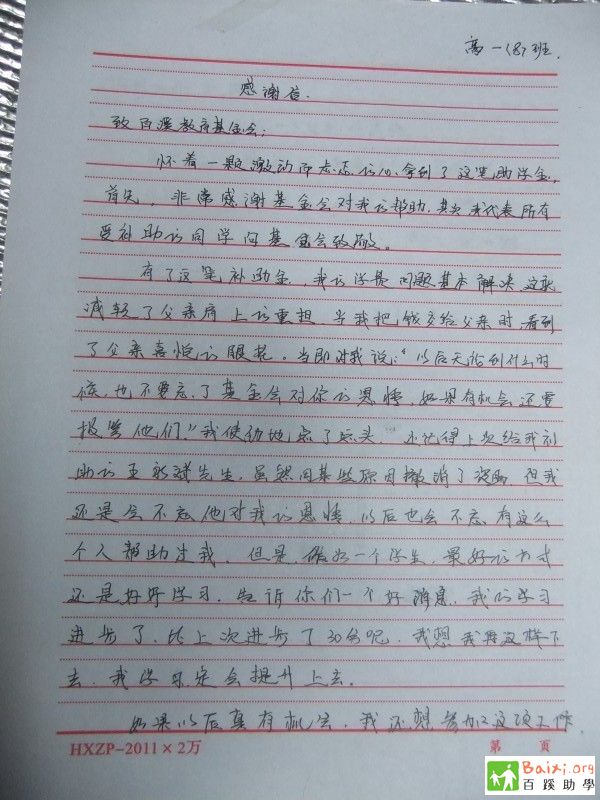 高一(8)班.
感谢信.
致百溪教育基金会:
怀着一颗激动而忐忑的心,拿到了这笔助学金,
首先,非常感谢基金会对我的帮助.其次我代表所有
受补助的同学向基金会致敬。
有了这笔补助金,我的学费问题基本解决,这也
减轻了父亲肩上的重担.当我把钱交给父亲时,看到
了父亲喜悦的眼神。当即对我说:“以后无论到什么时
候,也不要忘了基金会对你的恩情,如果有机会还要
报答他们.”我使劲地点了点头.还记得上次给我们
助的王先生,虽然因某些原因撤消了资助,但我
还是会不忘他对我的恩情,以后也会不忘有这么
个人帮助过我.但是,做为一个学生,最好的方式
还是好好学习.告诉你们一个好消息,我的学习
进步了,比上次进步了30名呢.我想我再这样下
去,我学习定会提升上去。
如果以后真有机会,我还想参加这项工作
HXZP-2011×2万
第 页
Baixi.org
百蹊助學